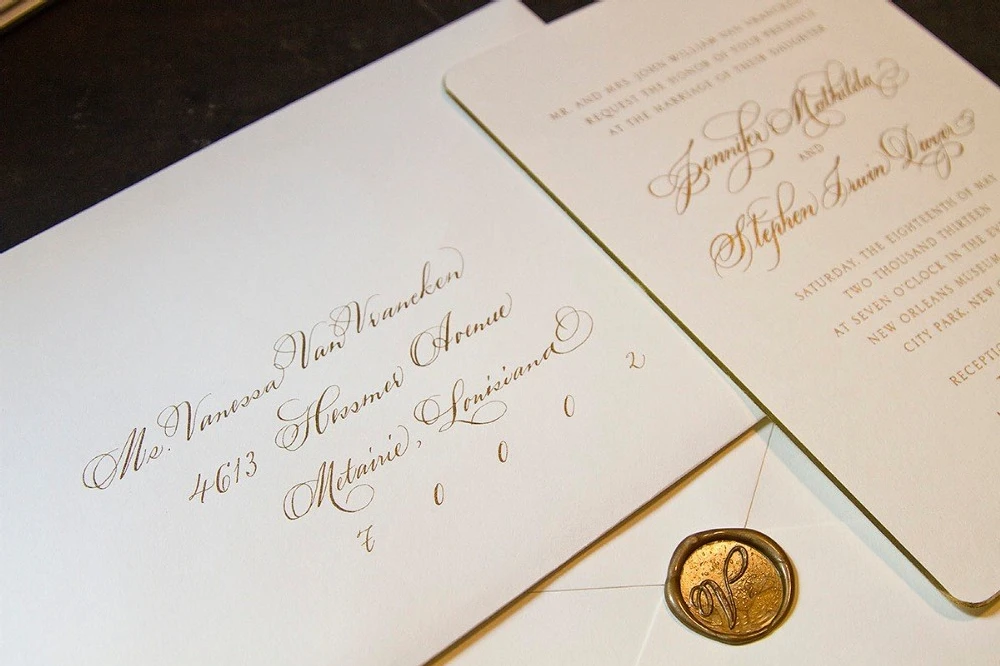 Ms. Vanessa Van Vrancken
4613 Hessmer Avenue
Metairie, Louisiana
7 0 0 0 2
MR. AND MRS. JOHN WILLIAM VAN VRANCKEN
REQUEST THE HONOR OF YOUR PRESENCE
AT THE MARRIAGE OF THEIR DAUGHTER
Jennifer Mathilda
AND
Stephen Irwin Dwyer
SATURDAY, THE EIGHTEENTH OF MAY
TWO THOUSAND THIRTEEN
AT SEVEN O'CLOCK IN THE
NEW ORLEANS MUSEUM
CITY PARK, NEW
RECEPTION
V